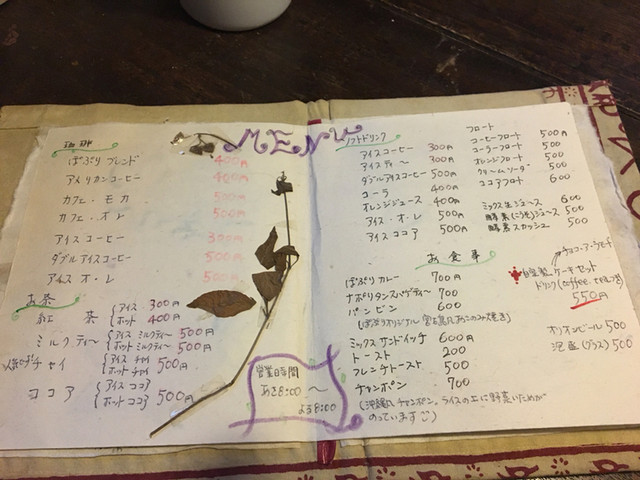 MENU
珈琲
ぱぷり ブレンド 400円
アメリカンコーヒー 400円
カフェ・モカ 500円
カフェ・オレ 500円
アイスコーヒー 300円
ダブルアイスコーヒー 500円
アイスオ・レ 500円
お茶
紅茶 アイス 300円
ホット 400円
ミルクティ〜 アイスミルクティ〜 500円
ホットミルクティ〜 500円
チャイ アイスチャイ 500円
ホットチャイ 500円
ココア アイスココア
ホットココア 500円
営業時間
あさ8:00〜
よる8:00
ソフトドリンク
アイスコーヒー 300円
アイスティ〜 300円
ダブルアイスコーヒー 500円
コーラ 400円
オレンジジュース 400円
アイス・オ・レ 500円
アイスココア 500円
フロート
コーヒーフロート 500円
コーラフロート 500
オレンジフロート 500
クリームソーダ 500
ココアフロート 600
ミックスジュース 600
酵素ジュース 500
酵素スカッシュ 500
お食事
ぱぷりカレー 700円
ナポリタンスパゲティ〜 700
パンビン 600
(ぱぷりオリジナル 宮古島風おこのみ焼き)
ミックスサンドイッチ 600円
トースト 200
フレンチトースト 500
チャンポン 700
(沖縄風チャンポン、ライスの上に野菜いためが
のっています)
自家製ケーキセット
ドリンク(coffee, tea,)
550円
オリオンビール 500
泡盛(グラス) 500